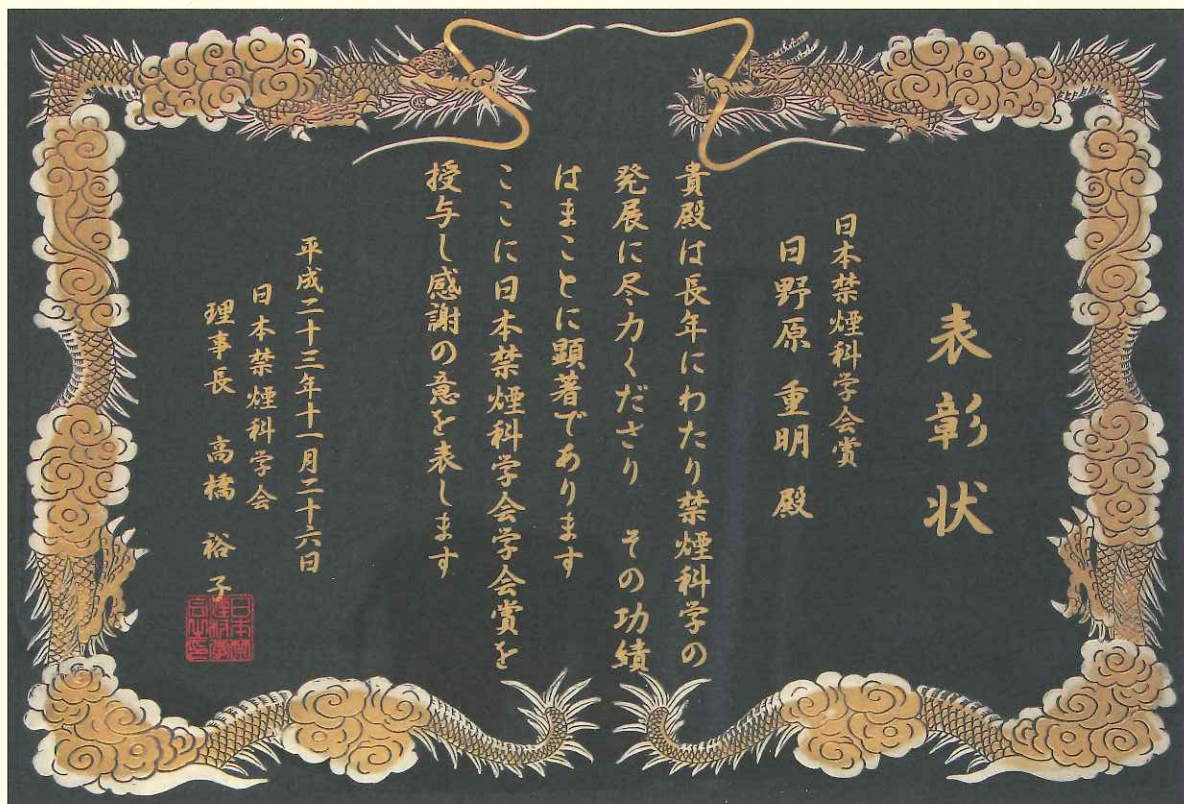 表彰状
日本禁煙科学会賞
日野原 重明 殿
貴殿は長年にわたり禁煙科学の
発展に尽力くださり その功績
はまことに顕著であります
ここに日本禁煙科学会学会賞を
授与し感謝の意を表します
平成二十三年十一月二十六日
日本禁煙科学会
理事長 高橋 裕子